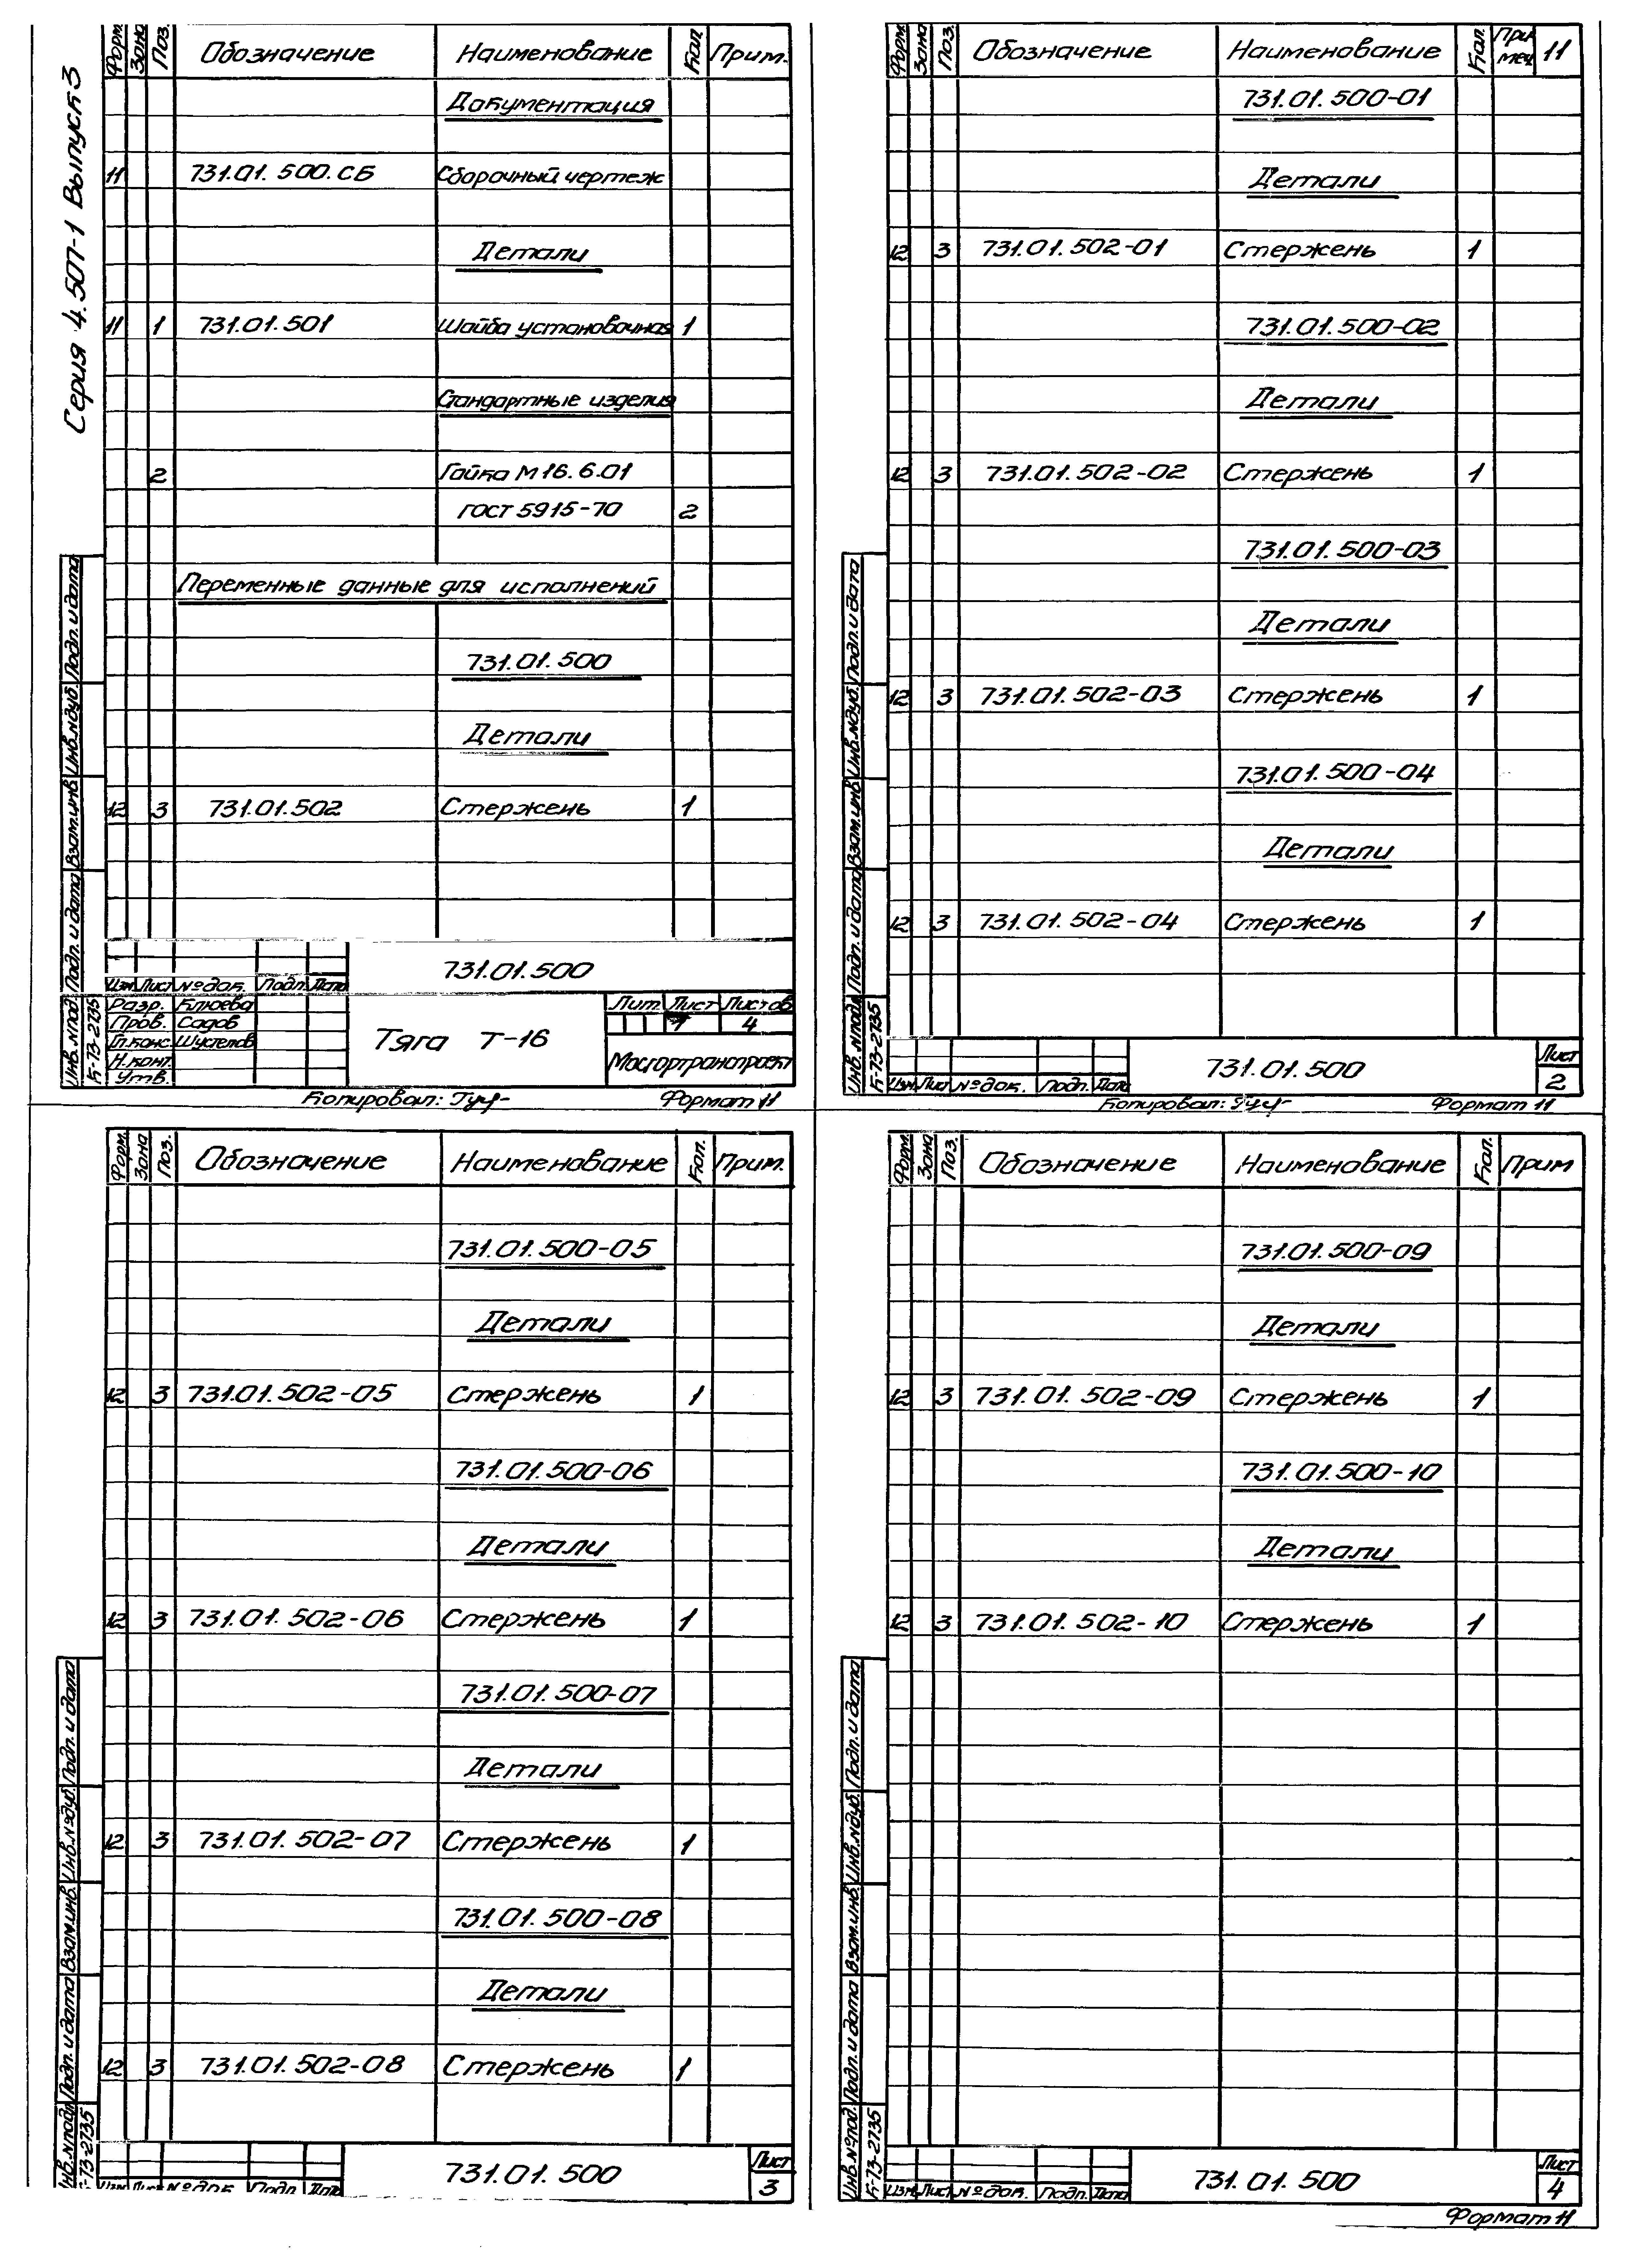 Серия 4.507-1 Выпуск 3
Форм. Зона Поз. Обозначение Наименование Кол. Прим.
Документация
11 731.01.500.СБ Сборочный чертеж
Детали
11 1 731.01.501 Шайба установочная 1
Стандартные изделия
2 Гайка М16.6.01
ГОСТ 5915-70 2
Переменные данные для исполнений
731.01.500
Детали
12 3 731.01.502 Стержень 1
Инв.№подл. Подп. и дата Взам.инв. Инв.№дуб. Подп. и дата
Б-73-2735
731.01.500
Изм Лист № док. Подп. Дата
Разр. Клюева
Пров. Садов
Гл.конс.
Н.конт.
Утв.
Тяга Т-16
Лит. Лист Листов
1 4
Мосгортранспроект
Копировал:
Формат 11
Форм. Зона Поз. Обозначение Наименование Кол. Примеч. 11
731.01.500-01
Детали
12 3 731.01.502-01 Стержень 1
731.01.500-02
Детали
12 3 731.01.502-02 Стержень 1
731.01.500-03
Детали
12 3 731.01.502-03 Стержень 1
731.01.500-04
Детали
12 3 731.01.502-04 Стержень 1
Инв.№подл. Подп. и дата Взам.инв. Инв.№дуб. Подп. и дата
Б-73-2735
Изм Лист № док. Подп. Дата
731.01.500
Лист
2
Копировал:
Формат 11
Форм. Зона Поз. Обозначение Наименование Кол. Прим.
731.01.500-05
Детали
12 3 731.01.502-05 Стержень 1
731.01.500-06
Детали
12 3 731.01.502-06 Стержень 1
731.01.500-07
Детали
12 3 731.01.502-07 Стержень 1
731.01.500-08
Детали
12 3 731.01.502-08 Стержень 1
Инв.№подл. Подп. и дата Взам.инв. Инв.№дуб. Подп. и дата
Б-73-2735
Изм Лист № док. Подп. Дата
731.01.500
Лист
3
Форм. Зона Поз. Обозначение Наименование Кол. Прим
731.01.500-09
Детали
12 3 731.01.502-09 Стержень 1
731.01.500-10
Детали
12 3 731.01.502-10 Стержень 1
Инв.№под. Подп. и дата Взам.инв. Инв.№дуб. Подп. и дата
Б-73-2735
Изм Лист № док. Подп. Дата
731.01.500
Лист
4
Формат 11